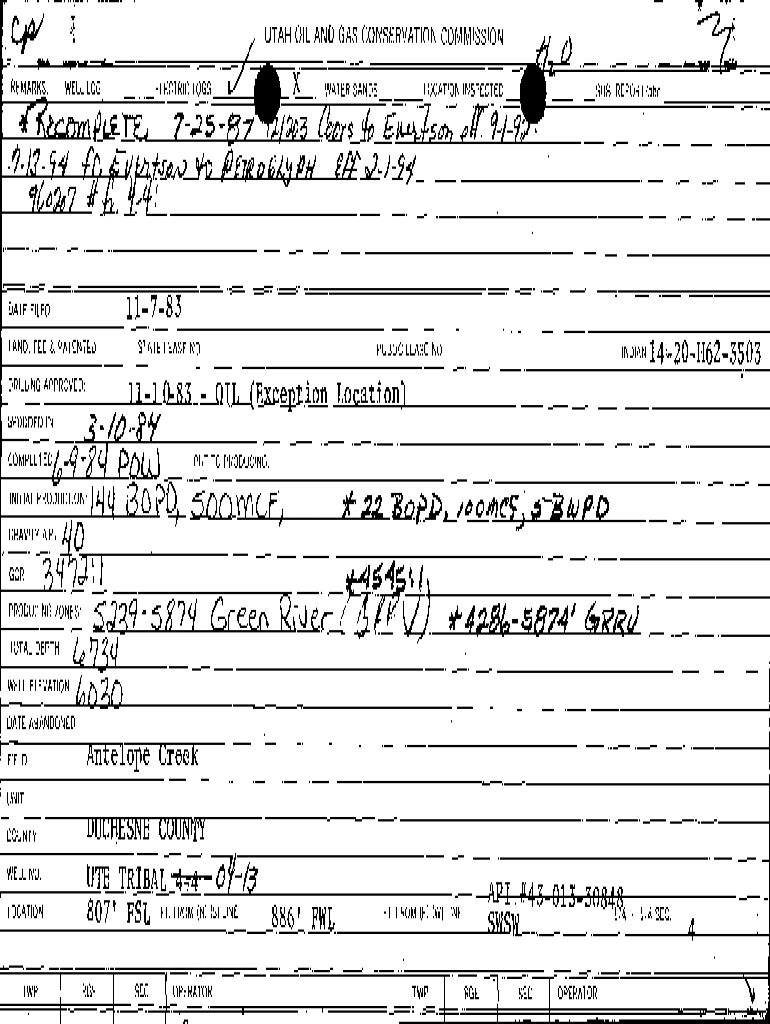 UTAH OIL AND GAS CONSERVATION COMMISSION
H2O
REMARKS: WELL LOG ELECTRIC LOGS X WATER SANDS LOCATION INSPECTED SUB. REPORT/abd.
* RECOMPLETE 7-25-87 921003 Coors to Evertson eff. 9-1-92.
7-13-94 fr Evertson to PETROGLYPH EFF 2-1-94
960207 # fr 4-4!
DATE FILED 11-7-83
LAND: FEE & PATENTED STATE LEASE NO PUBLIC LEASE NO INDIAN 14-20-H62-3503
DRILLING APPROVED: 11-10-83 - OIL (Exception Location)
SPUDDED IN: 3-10-84
COMPLETED: 6-9-84 POW PUT TO PRODUCING:
INITIAL PRODUCTION: 144 BOPD, 500MCF, * 22 BOPD, 100MCF, 5 BWPD
GRAVITY A.P.I. 40
GOR: 3472:1 *4545:1
PRODUCING ZONES: 5239-5874 Green River (GRRV) *4286-5874' GRRV
TOTAL DEPTH: 6734
WELL ELEVATION: 6030
DATE ABANDONED:
FIELD: Antelope Creek
UNIT:
COUNTY: DUCHESNE COUNTY
WELL NO. UTE TRIBAL 4-4 04-13
API #43-013-30848
LOCATION 807' FSL FT. FROM (N) (S) LINE, 886' FWL FT. FROM (E) (W) LINE SWSW 1/4 - 1/4 SEC. 4
TWP. RGE. SEC. OPERATOR TWP. RGE. SEC. OPERATOR